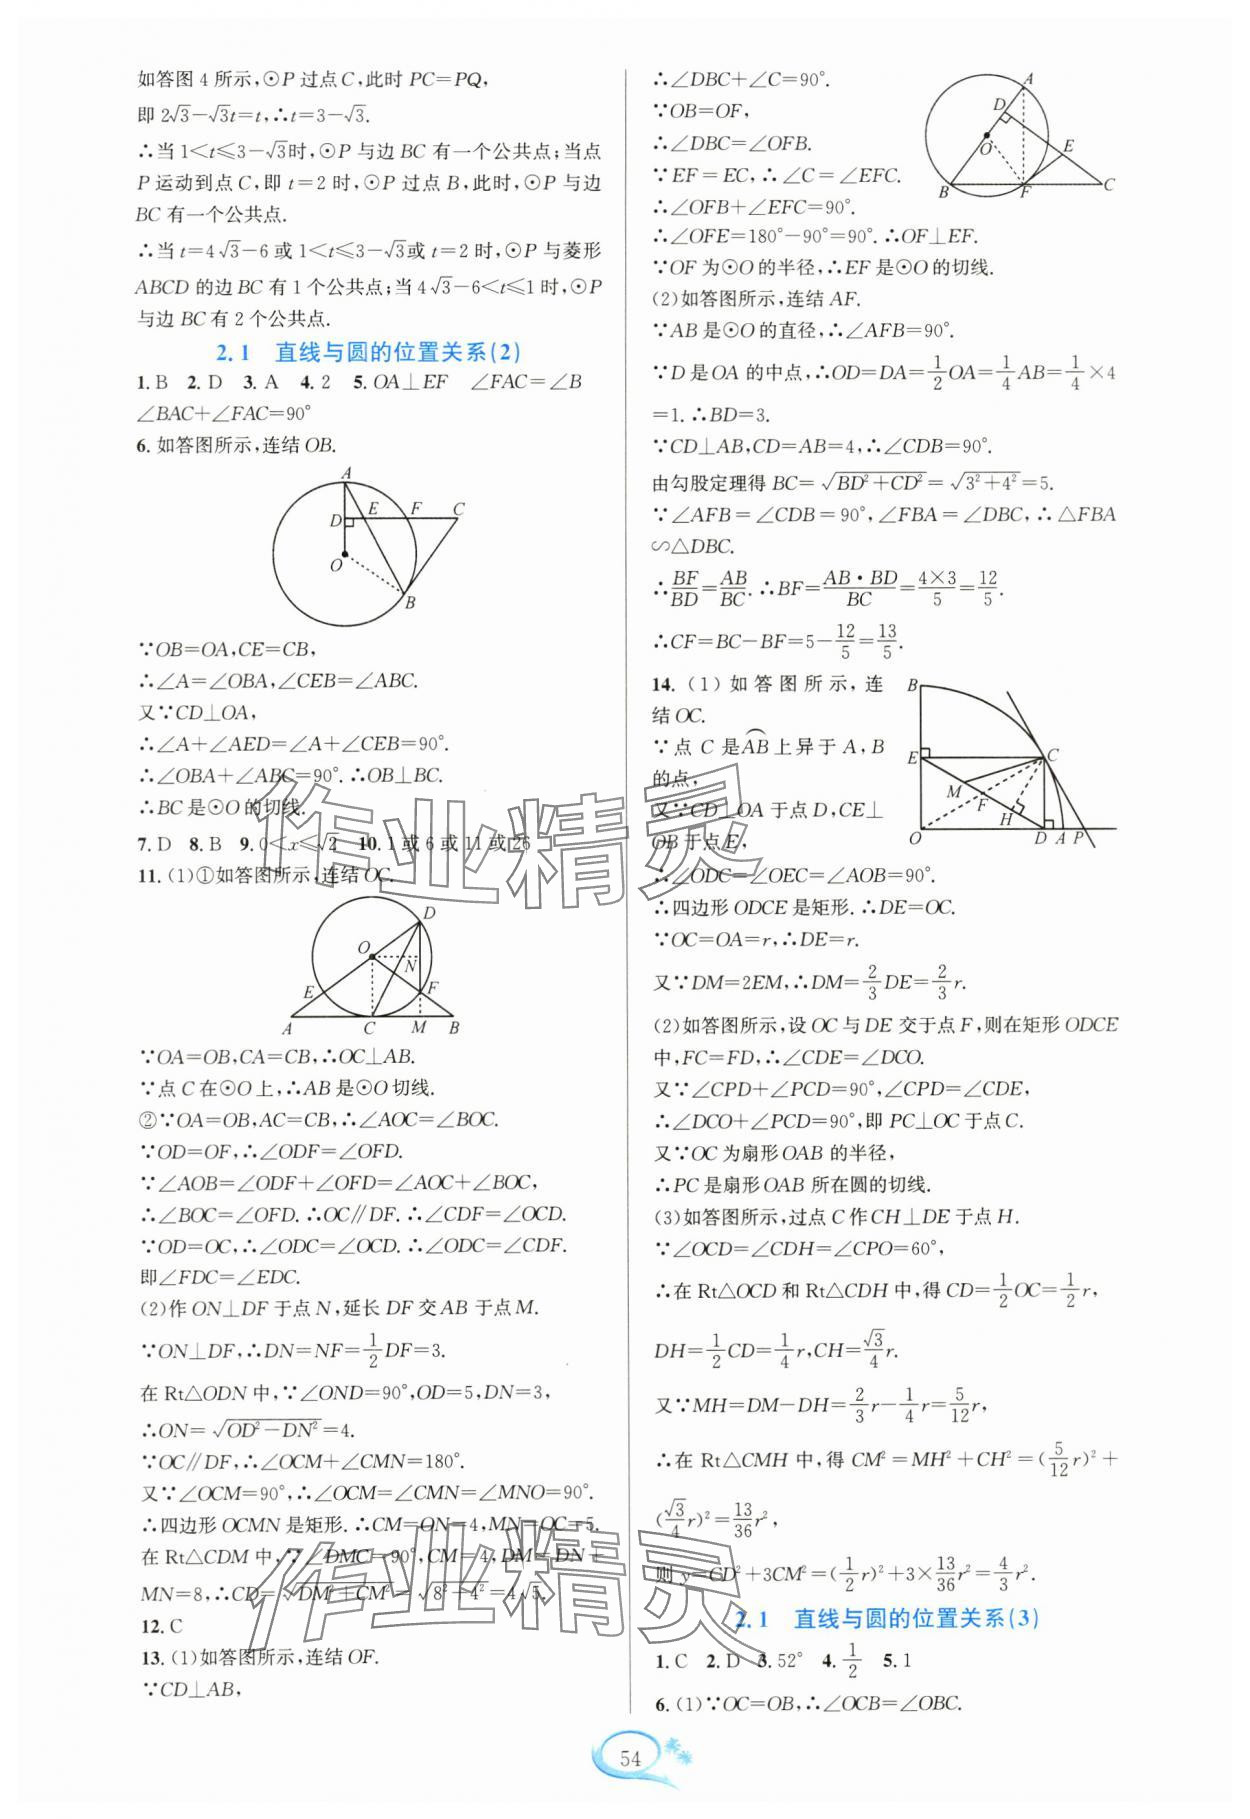 如答图 4 所示,⊙P 过点 C,此时 PC=PQ,
即 2√3-√3t=t,∴t=3-√3.
∴当 1<t≤3-√3时,⊙P 与边 BC 有一个公共点;当点
P 运动到点 C,即 t=2 时,⊙P 过点 B,此时,⊙P 与边
BC 有一个公共点.
∴当 t=4√3-6 或 1<t≤3-√3或 t=2 时,⊙P 与菱形
ABCD 的边 BC 有 1 个公共点;当 4√3-6<t≤1 时,⊙P
与边 BC 有 2 个公共点.
2.1 直线与圆的位置关系(2)
1. B 2. D 3. A 4. 2 5. OA⊥EF ∠FAC=∠B
∠BAC+∠FAC=90°
6. 如答图所示,连结 OB.
A
D E F C
O
B
∵OB=OA,CE=CB,
∴∠A=∠OBA,∠CEB=∠ABC.
又∵CD⊥OA,
∴∠A+∠AED=∠A+∠CEB=90°.
∴∠OBA+∠ABC=90°.∴OB⊥BC.
∴BC 是⊙O 的切线.
7. D 8. B 9. 0<x≤√2 10. 1 或 6 或 11 或 26
11. (1)①如答图所示,连结 OC.
D
O
N
E F
A C M B
∵OA=OB,CA=CB,∴OC⊥AB.
∵点 C 在⊙O 上,∴AB 是⊙O 切线.
②∵OA=OB,AC=CB,∴∠AOC=∠BOC.
∵OD=OF,∴∠ODF=∠OFD.
∵∠AOB=∠ODF+∠OFD=∠AOC+∠BOC,
∴∠BOC=∠OFD.∴OC∥DF.∴∠CDF=∠OCD.
∵OD=OC,∴∠ODC=∠OCD.∴∠ODC=∠CDF.
即∠FDC=∠EDC.
(2)作 ON⊥DF 于点 N,延长 DF 交 AB 于点 M.
∵ON⊥DF,∴DN=NF=1/2DF=3.
在 Rt△ODN 中,∵∠OND=90°,OD=5,DN=3,
∴ON=√(OD²-DN²)=4.
∵OC∥DF,∴∠OCM+∠CMN=180°.
又∵∠OCM=90°,∴∠OCM=∠CMN=∠MNO=90°.
∴四边形 OCMN 是矩形.∴CM=ON=4,MN=OC=5.
在 Rt△CDM 中,∵∠DMC=90°,CM=4,DM=DN+
MN=8,∴CD=√(DM²+CM²)=√(8²+4²)=4√5.
12. C
13. (1)如答图所示,连结 OF.
∵CD⊥AB,
∴∠DBC+∠C=90°.
∵OB=OF,
∴∠DBC=∠OFB.
∵EF=EC,∴∠C=∠EFC.
∴∠OFB+∠EFC=90°.
∴∠OFE=180°-90°=90°.∴OF⊥EF.
∵OF 为⊙O 的半径,∴EF 是⊙O 的切线.
A
D
O E
B F C
(2)如答图所示,连结 AF.
∵AB 是⊙O 的直径,∴∠AFB=90°.
∵D 是 OA 的中点,∴OD=DA=1/2OA=1/4AB=1/4×4
=1.∴BD=3.
∵CD⊥AB,CD=AB=4,∴∠CDB=90°.
由勾股定理得 BC=√(BD²+CD²)=√(3²+4²)=5.
∵∠AFB=∠CDB=90°,∠FBA=∠DBC,∴△FBA
∽△DBC.
∴BF/BD=AB/BC.∴BF=AB·BD/BC=4×3/5=12/5.
∴CF=BC-BF=5-12/5=13/5.
14. (1)如答图所示,连
结 OC.
∵点 C 是AB⌒上异于 A,B
的点,
又∵CD⊥OA 于点 D,CE⊥
OB 于点 E,
B
E C
M
F H
O D A P
∴∠ODC=∠OEC=∠AOB=90°.
∴四边形 ODCE 是矩形.∴DE=OC.
∵OC=OA=r,∴DE=r.
又∵DM=2EM,∴DM=2/3DE=2/3r.
(2)如答图所示,设 OC 与 DE 交于点 F,则在矩形 ODCE
中,FC=FD,∴∠CDE=∠DCO.
又∵∠CPD+∠PCD=90°,∠CPD=∠CDE,
∴∠DCO+∠PCD=90°,即 PC⊥OC 于点 C.
又∵OC 为扇形 OAB 的半径,
∴PC 是扇形 OAB 所在圆的切线.
(3)如答图所示,过点 C 作 CH⊥DE 于点 H.
∵∠OCD=∠CDH=∠CPO=60°,
∴在 Rt△OCD 和 Rt△CDH 中,得 CD=1/2OC=1/2r,
DH=1/2CD=1/4r,CH=√3/4r.
又∵MH=DM-DH=2/3r-1/4r=5/12r,
∴在 Rt△CMH 中,得 CM²=MH²+CH²=(5/12r)²+
(√3/4r)²=13/36r²,
则 y=CD²+3CM²=(1/2r)²+3×13/36r²=4/3r².
2.1 直线与圆的位置关系(3)
1. C 2. D 3. 52° 4. 1/2 5. 1
6. (1)∵OC=OB,∴∠OCB=∠OBC.
54
作业精灵
作业精灵